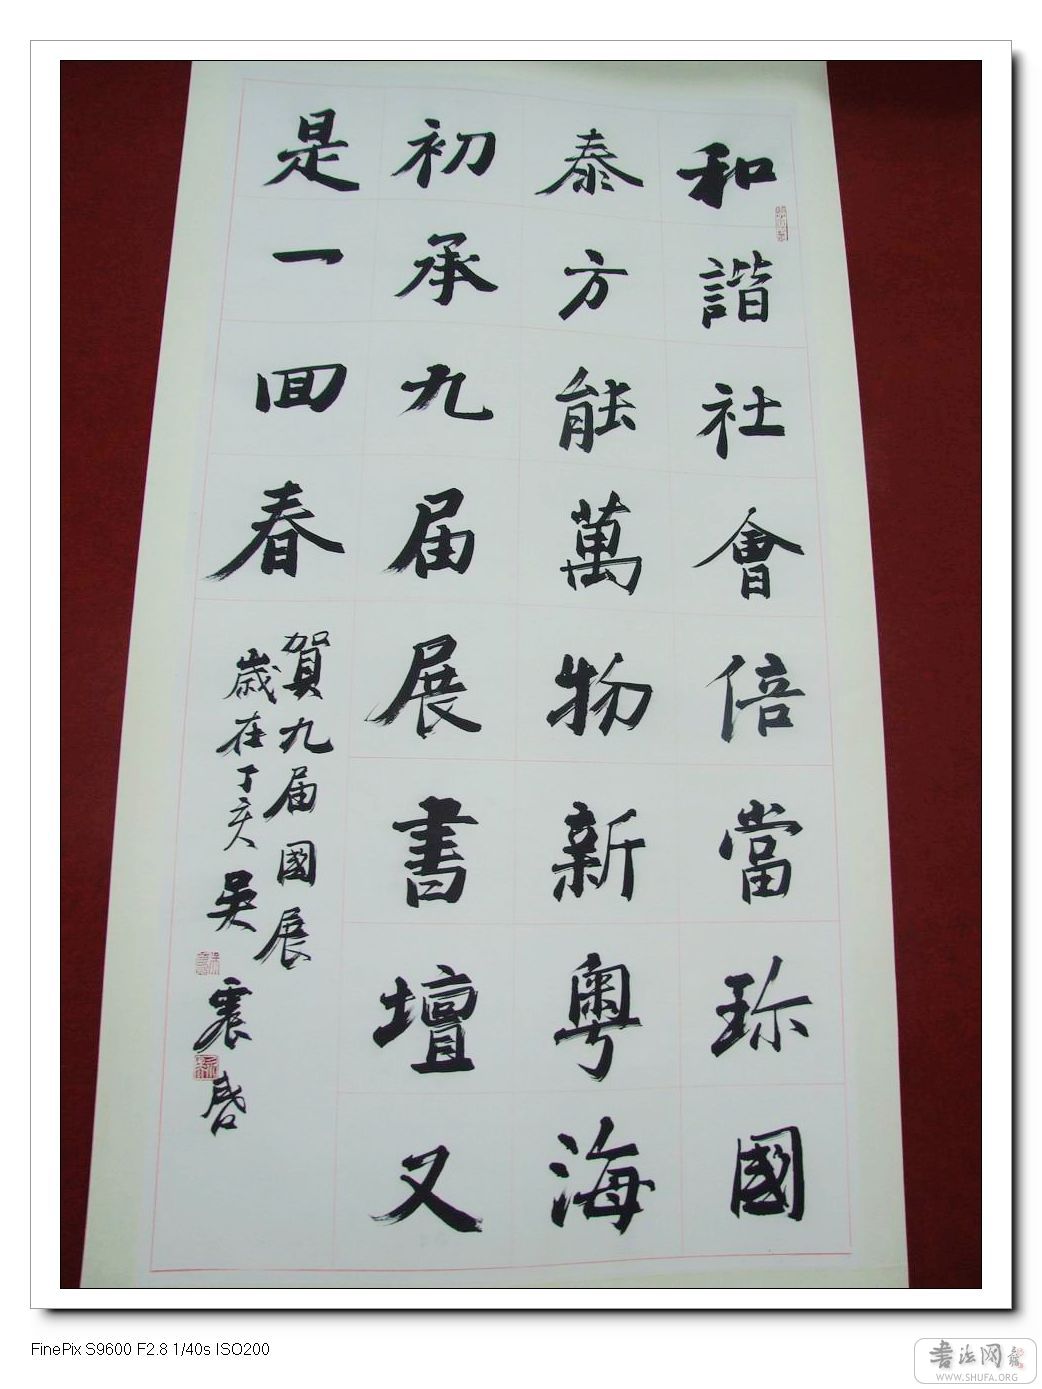 和諧社會倍當珎國
泰方能萬物新粤海
初承九届展書壇又
是一回春
賀九届國展
歳在丁亥吴震启
FinePix S9600 F2.8 1/40s ISO200
書法网
WWW.SHUFA.ORG